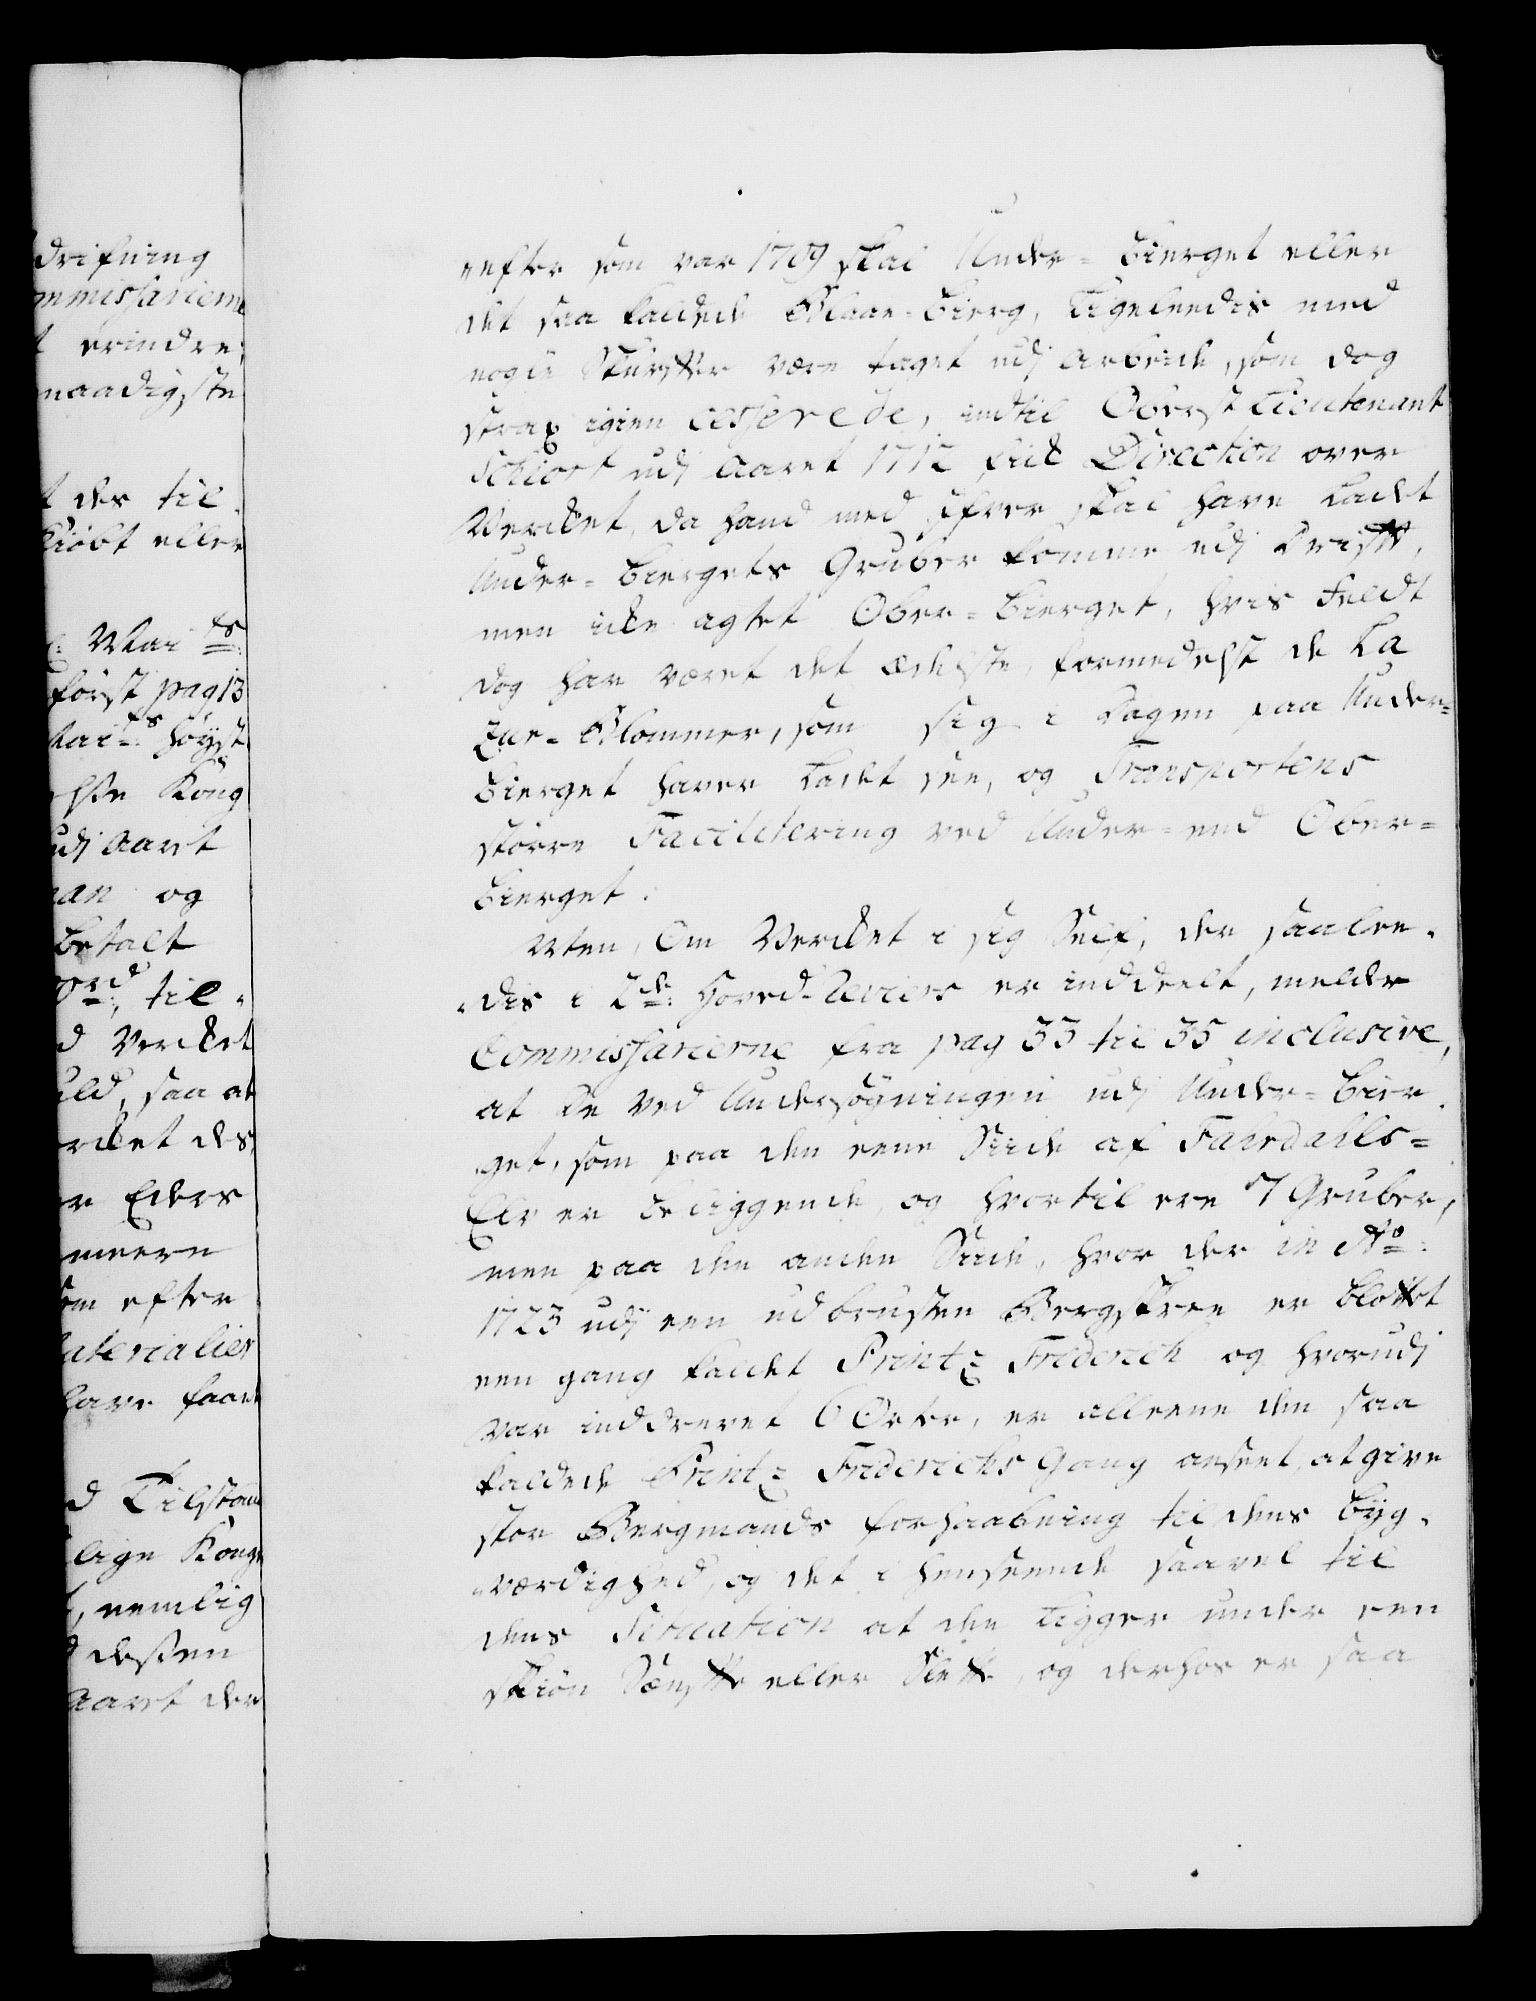 drifning
ommissarierne
t erindre,
naadigste
t des til¬
kiöbt eller
Mai ts:
först pag 13
Mai ts höyst
Kong
udj Aaret
og
betalt
til¬
d Verket
uld, saa at
erket des
Eders
meere
om efter
aterialier
have faaet
d Tilstand
lige Kong
, nemlig
dessen
Aaret der
efter som var 1709 skal Under-Bierget eller
det saa kaldede Blaae-Bierg, ligeleedis med
nogle Skursker være taget udj Arbeide, som dog
strax igien cesserede, indtil Oberst Lieutenant
Schiort udj Aaret 1712 fik Direction over
Verket, da hand med Ifver skal have ladet
Under-Biergets Gruber komme udj Drift,
men icke agtet Ober-Bierget, hvis Feldt
dog har været det ædelste, formedelst de La
zur-Blommer, som sig i Dagen paa Under-
Bierget haver ladet see, og Transportens
större Facilitering ved Under- end Ober-
Bierget.
Men, Om Verket i sig Self, der saalee¬
dis i 2de: Hoved-Revier er inddeelt, melder
Commissarierne fra pag 33 til 35 inclusive,
at de ved Undersögningen udj Under-Bier¬
get, som paa den eene Siide af Faisdalls-
Elv er beliggende, og hvortil ere 7 Gruber,
men paa den anden Siide, hvor der in Ao:
1723 udj een udbrusten Bergskree er blottet
een gang kaldet Printz Friderich og hvorudj
var inddrevet 6 Örter, er alleene den saa
kaldede Printz Friderichs Gang anseet, at give
stor Bergmands forhaabning til dens byg¬
værdighed, og det i henseende saavel til
dens Situation at den ligger under een
skiön Sænke eller Slette, og derhos er saa